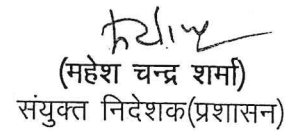 (महेश चन्द्र शर्मा)
संयुक्त निदेशक(प्रशासन)